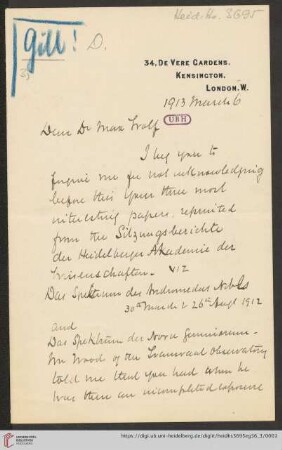 Gill!
D.
Heid. Hs. 3695
34, DE VERE GARDENS,
KENSINGTON,
LONDON, W.
1913 March 6
Dear Dr Max Wolf
UBH
I beg you to
forgive me for not acknowledging
before this your three most
interesting papers, reprinted
from the Sitzungsberichte
der Heidelberger Akademie der
Wissenschaften. viz
Das Spektrum des Andromeda Nebels
30th March & 26th Augt 1912
and
Das Spektrum der Nova Geminorum.
Mr Wood of the Transvaal Observatory
told me that you had when he
was there an incompleted exposure
https://digi.ub.uni-heidelberg.de/diglit/heidhs3695eg36_3/0001